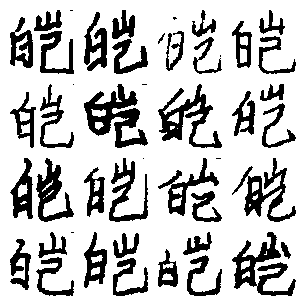 皑皑皑皑
皑皑皑皑
皑皑皑皑
皑皑皑皑